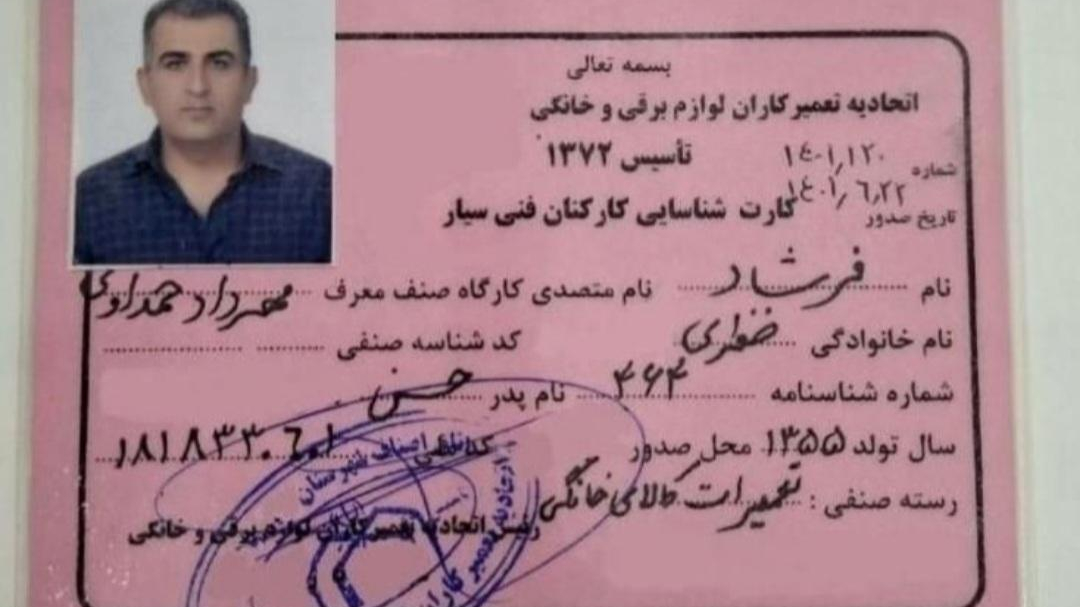 بسمه تعالی
اتحادیه تعمیرکاران لوازم برقی و خانگی
تأسیس ۱۳۷۲
شماره ۱۴۰۱٫۱۲۰
تاریخ صدور ۱۴۰۱٫۶٫۲۲
کارت شناسایی کارکنان فنی سیار
نام فرشاد نام متصدی کارگاه صنف معرف مهرداد حمداوی
نام خانوادگی کد شناسه صنفی
شماره شناسنامه ۴۶۴ نام پدر حسن
سال تولد ۱۳۵۵ محل صدور کد ملی ۱۸۱۸۳۳۰۶۰۱
رسته صنفی : تعمیرات کالای خانگی
رئیس اتحادیه تعمیرکاران لوازم برقی و خانگی